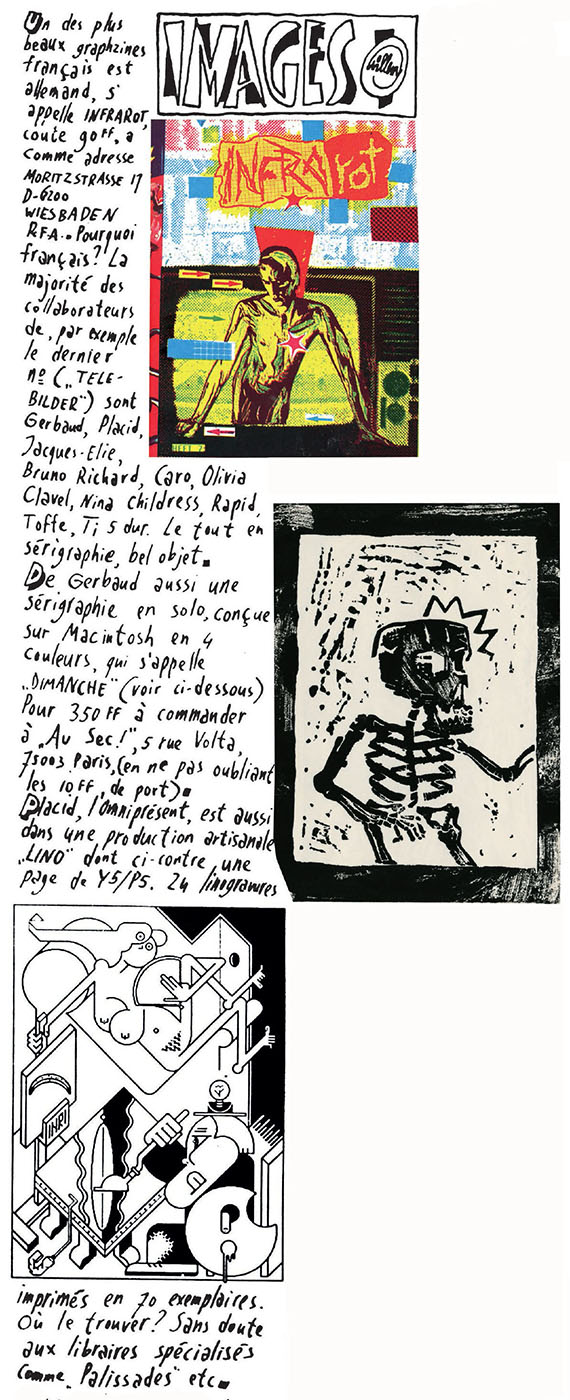 Un des plus
beaux graphzines
français est
allemand, s'
appelle INFRAROT,
coute 90FF, a
comme adresse
MORITZSTRASSE 17
D-6200
WIESBADEN
RFA. Pourquoi
français? La
majorité des
collaborateurs
de, par exemple
le dernier
nº („TELE-
BILDER") sont
Gerbaud, Placid,
Jacques-Elie,
Bruno Richard, Caro, Olivia
Clavel, Nina Childress, Rapid,
Toffe, Ti 5 dur. Le tout en
sérigraphie, bel objet.
De Gerbaud aussi une
sérigraphie en solo, conçue
sur Macintosh en 4
couleurs, qui s'appelle
„DIMANCHE" (voir ci-dessous)
Pour 350 FF à commander
à „Au Sec!", 5 rue Volta,
75003 Paris, (en ne pas oubliant
les 10FF, de port).
Placid, l'omniprésent, est aussi
dans une production artisanale
„LINO" dont ci-contre une
page de Y5/P5. 24 linogravures
IMAGES
Willem
INFRAROT
HEFT 7
INRI
imprimés en 70 exemplaires.
Où le trouver? Sans doute
aux libraires spécialisés
comme „Palissades" etc.